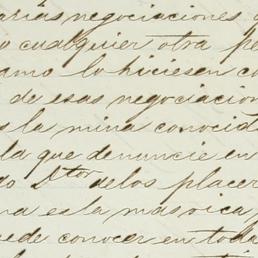 arias negociaciones
o cualquier otra pe
amo lo hiciesen co
de esas negociacion
s la mina conocid
la que denuncie en
do Stor delos placer
na es la mas rica
uede conocer en toda